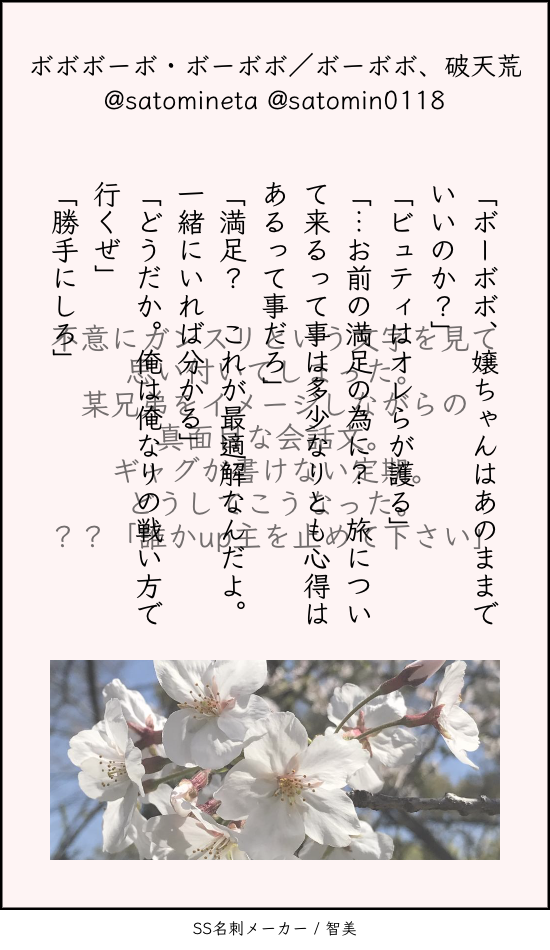 ボボボーボ・ボーボボ／ボーボボ、破天荒
@satomineta @satomin0118
「ボーボボ、嬢ちゃんはあのままで
いいのか？」
「ビュティはオレらが護る」
「…お前の満足の為に？　旅につい
て来るって事は多少なりとも心得は
あるって事だろ」
「満足？　これが最適解なんだよ。
一緒にいれば分かる」
「どうだか。俺は俺なりの戦い方で
行くぜ」
「勝手にしろ」
不意にガンスリという文字を見て
思い付いてしまった。
某兄弟をイメージしながらの
真面目な会話文。
ギャグが書けない定期。
どうしてこうなった。
？？「誰かup主を止めて下さい」
SS名刺メーカー / 智美